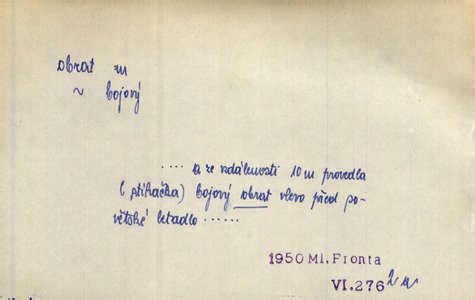 obrat m
~ bojový
.... a ze vzdálenosti 10 m provedla
(stíhačka) bojový obrat vlevo před so-
větské letadlo ......
1950 Ml. Fronta
VI.276